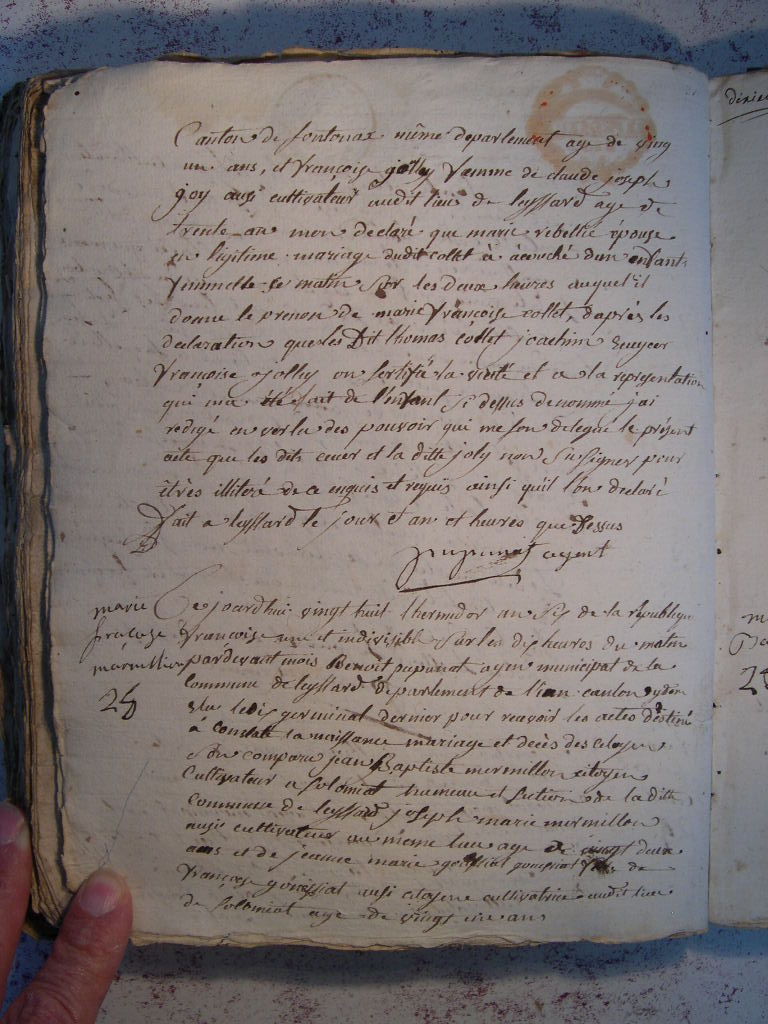 Canton de fontenax même departement age de ving
un ans, et françoise jolly femme de claude joseph
joy ausi cultivateur audit lieu de leyssard age de
trente an mon declaré que marie rebellie épouse
en ligitime mariage dudit collet à acouché dun enfant
femmelle se matin sur les deux heures auquel il
donne le prenon de marie françoise collet, daprès les
declaration que les Dit thomas collet joachim
françoise jolly on sertifié la verité et a la representation
qui ma été fait de l'enfant si dessus denommé j'ai
redigé en vertu des pouvoir qui me son delegué le présent
acte que les dits et la ditte joly non su signer pour
êtres illiteré de ce enquis et requis ainsi quil l'on declaré
Fait a leyssard le jour et an et heures que dessus
pupunat agent
marie
françoise
mermillon
28
Ce jourdhui vingt huit thermidor an sis de la république
françoise une et indivisible sur les dis heures du matin
pardevant mois Benoit pupunat agen municipal de la
commune de leyssard departement de l'ain canton
elu le dis germinal dernier pour recevoir les actes destiné
à constaté la naissance mariage et decès des citoyens
son comparu jean Baptiste mermillon citoyen
cultivateur a solomiat hameau et section de la ditte
commune de leyssard joseph marie mermillon
ausi cultivateur au même lieu age de vingt deux
ans et de jeanne marie goussiat de
françois goussiat ausi citoyene cultivatrice audit lieu
de solomiat age de vingt un ans